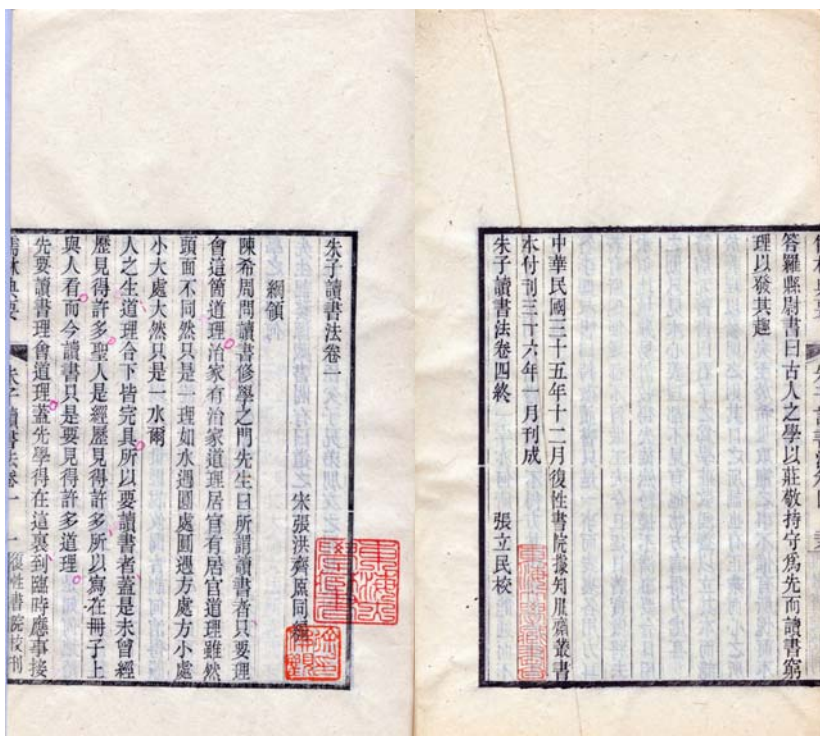 答羅縣尉書曰古人之學以莊敬持守爲先而讀書窮
理以發其趣
中華民國三十五年十二月復性書院據知服齋叢書
本付刊三十六年一月刊成
朱子讀書法卷四終 張立民校
朱子讀書法卷一
宋張洪齊原同編
綱領
陳希周問讀書修學之門先生曰所謂讀書者只要理
會這箇道理治家有治家道理居官有居官道理雖然
頭面不同然只是一理如水遇圓處圓遇方處方小處
小大處大然只是一水爾
人之生道理合下皆完具所以要讀書者蓋是未曾經
歷見得許多聖人是經歷見得許多所以寫在冊子上
與人看而今讀書只是要見得許多道理
先要讀書理會道理蓋先學得在這裏到臨時應事接
儒林典要 朱子讀書法卷一 一 復性書院校刊